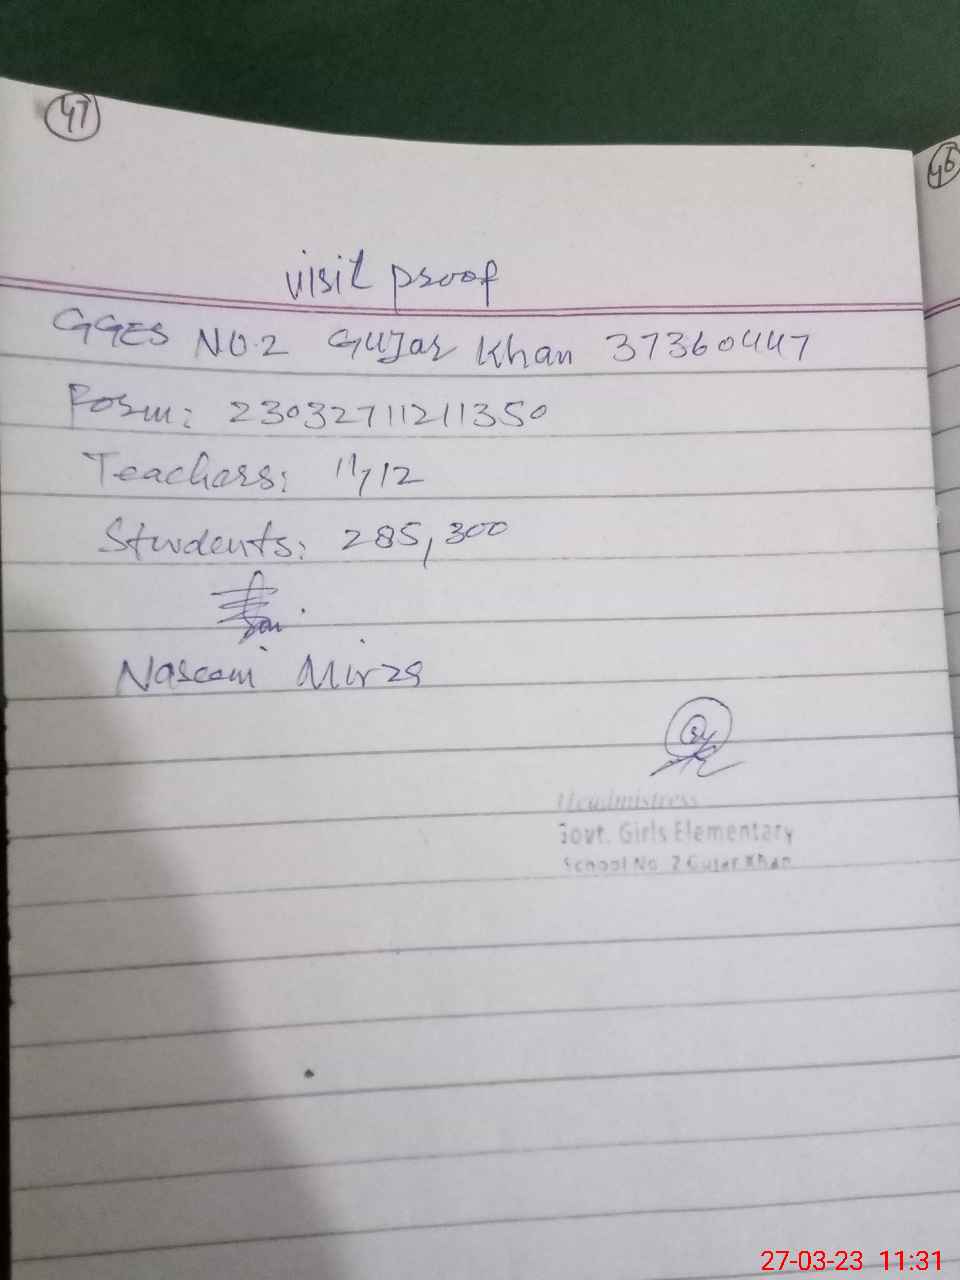 47
46
visit proof
GGES NO.2 Gujar Khan 37360447
Form: 23032711211350
Teachers: 11,12
Students: 285,300
Naseem Mirza
Headmistress
Govt. Girls Elementary
School No. 2 Gujar Khan
27-03-23 11:31